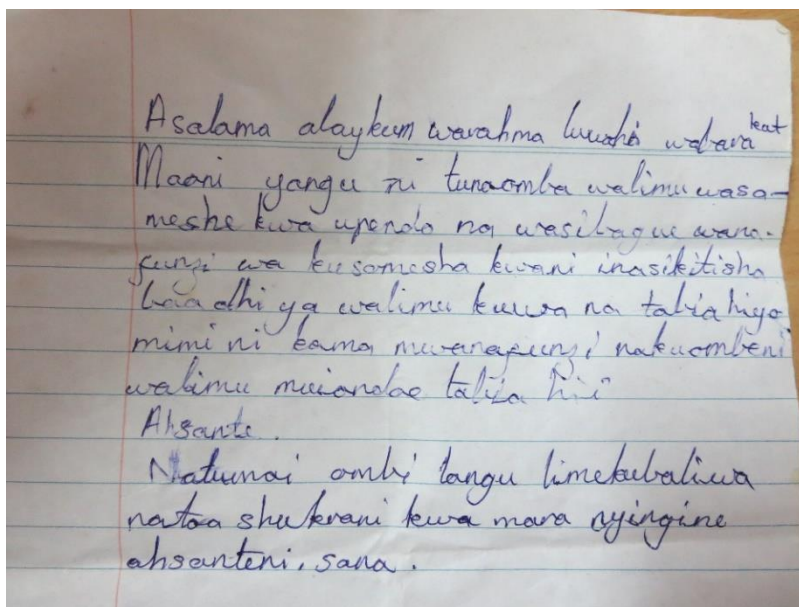 Asalama alaykum warahma luwahi wabarakat
Maoni yangu ni tunaomba walimu wasa-
meshe kwa upendo na wasibague wana-
funzi wa kusomesha kwani inasikitisha
baadhi ya walimu kuwa na tabia hiyo
mimi ni kama mwanafunzi nakuombeni
walimu muiondoe tabia hii
Ahsante.
Natumai ombi langu limekubaliwa
natoa shukrani kwa mara nyingine
ahsanteni, sana.